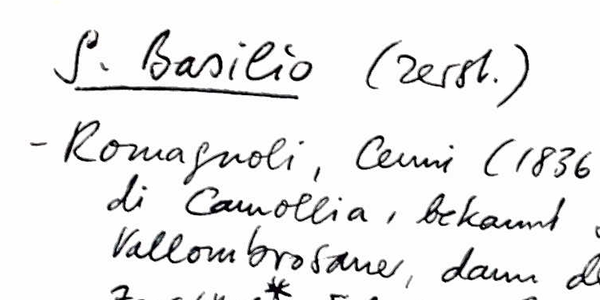 S. Basilio (zerst.)
- Romagnoli, Cenni (1836
di Camollia, bekannt
Vallombrosaner, dann